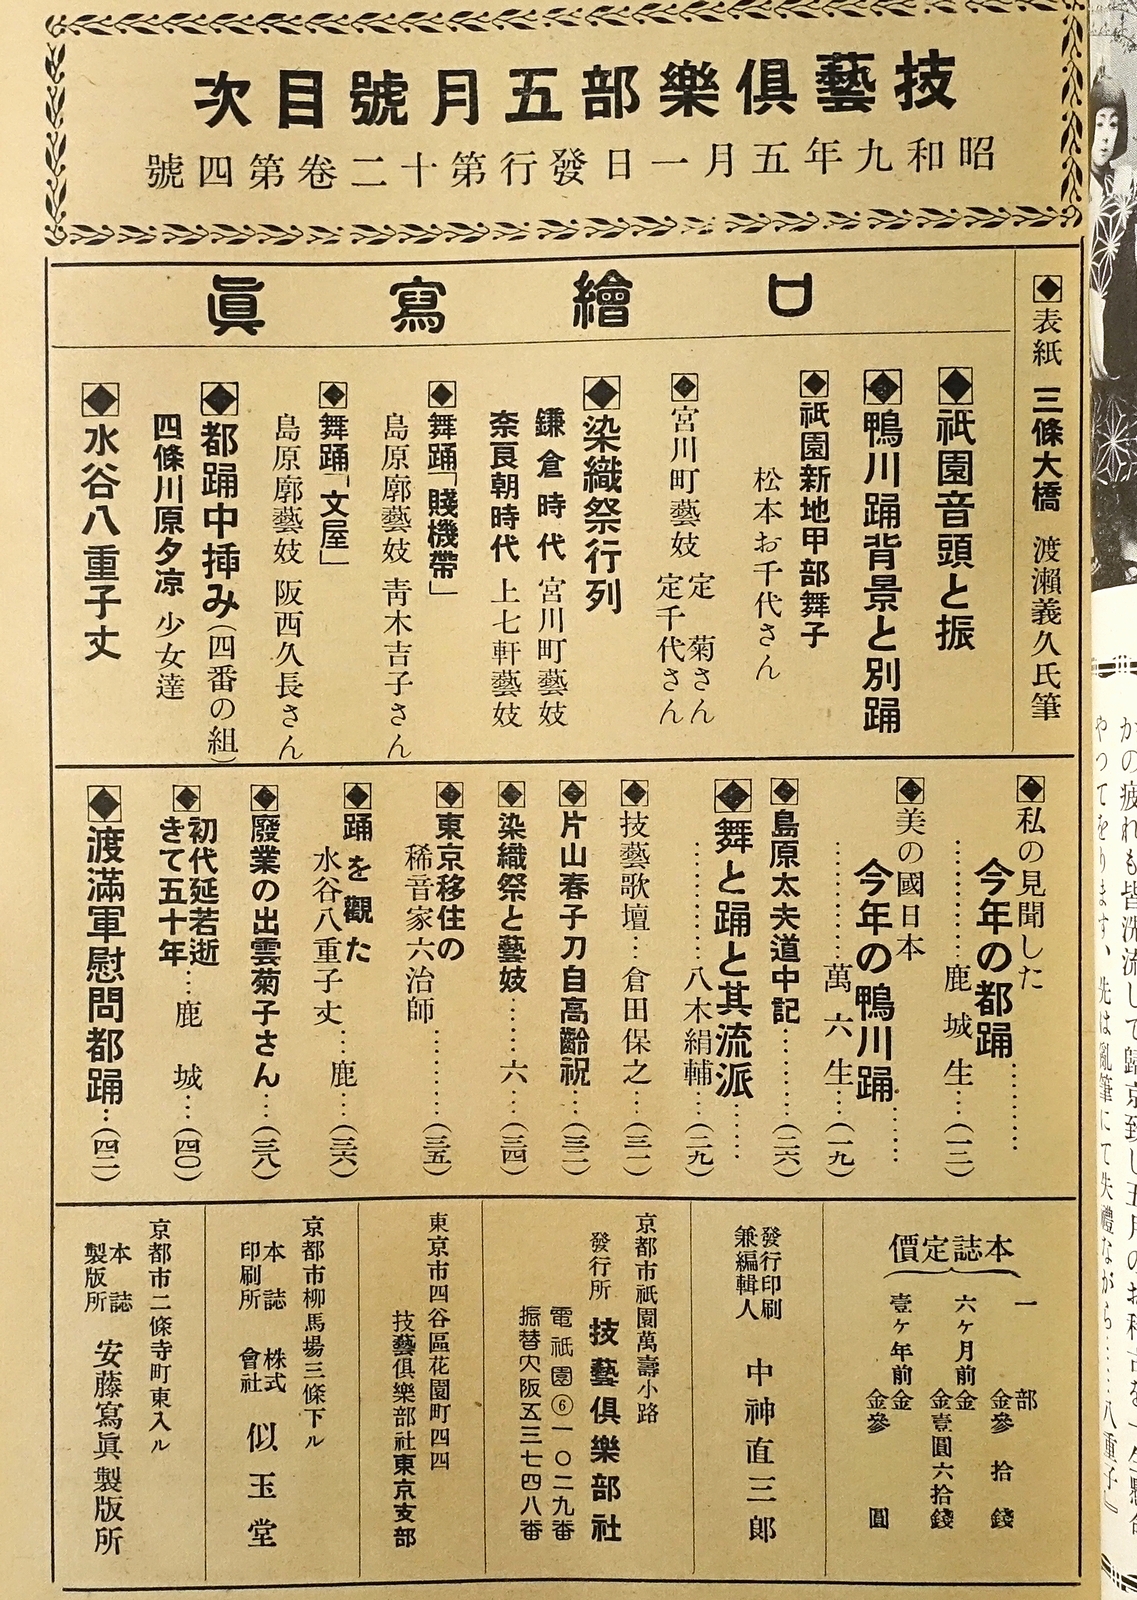 技藝倶樂部五月號目次
昭和九年五月一日發行第十二卷第四號
◆表紙 三條大橋 渡瀨義久氏筆
口繪寫眞
◆祇園音頭と振
◆鴨川踊背景と別踊
◆祇園新地甲部舞子
松本お千代さん
◆宮川町藝妓 定菊さん
定千代さん
◆染織祭行列
鎌倉時代 宮川町藝妓
奈良朝時代 上七軒藝妓
◆舞踊「賤機帶」
島原廓藝妓 靑木吉子さん
◆舞踊「文屋」
島原廓藝妓 阪西久長さん
◆都踊中挿み(四番の組)
四條川原夕凉 少女達
◆水谷八重子丈
◆私の見聞した
今年の都踊…………
…………鹿城生…(一二)
◆美の國日本
今年の鴨川踊……
…………萬六生…(一九)
◆島原太夫道中記………(二六)
◆舞と踊と其流派……
…………八木絹輔…(二九)
◆技藝歌壇…倉田保之…(三一)
◆片山春子刀自高齡祝…(三二)
◆染織祭と藝妓……六…(三四)
◆東京移住の
稀音家六治師…………(三五)
◆踊を觀た
水谷八重子丈…鹿…(三六)
◆廢業の出雲菊子さん…(三八)
◆初代延若逝
きて五十年…鹿城…(四〇)
◆渡滿軍慰問都踊…(四二)
本誌定價
一部 金參拾錢
六ヶ月前金 金壹圓六拾錢
壹ヶ年前金 金參圓
發行印刷
兼編輯人 中神直三郎
京都市祇園萬壽小路
發行所 技藝倶樂部社
電祇園⑥一〇二九番
振替大阪五三七四八番
東京市四谷區花園町四四
技藝倶樂部社東京支部
京都市柳馬場三條下ル
本誌印刷所 株式會社 似玉堂
京都市二條寺町東入ル
本誌製版所 安藤寫眞製版所
かの疲れも皆洗流して歸京致し五月のお稽古を一生懸命
やつてをります、先は亂筆にて失禮ながら……八重子』